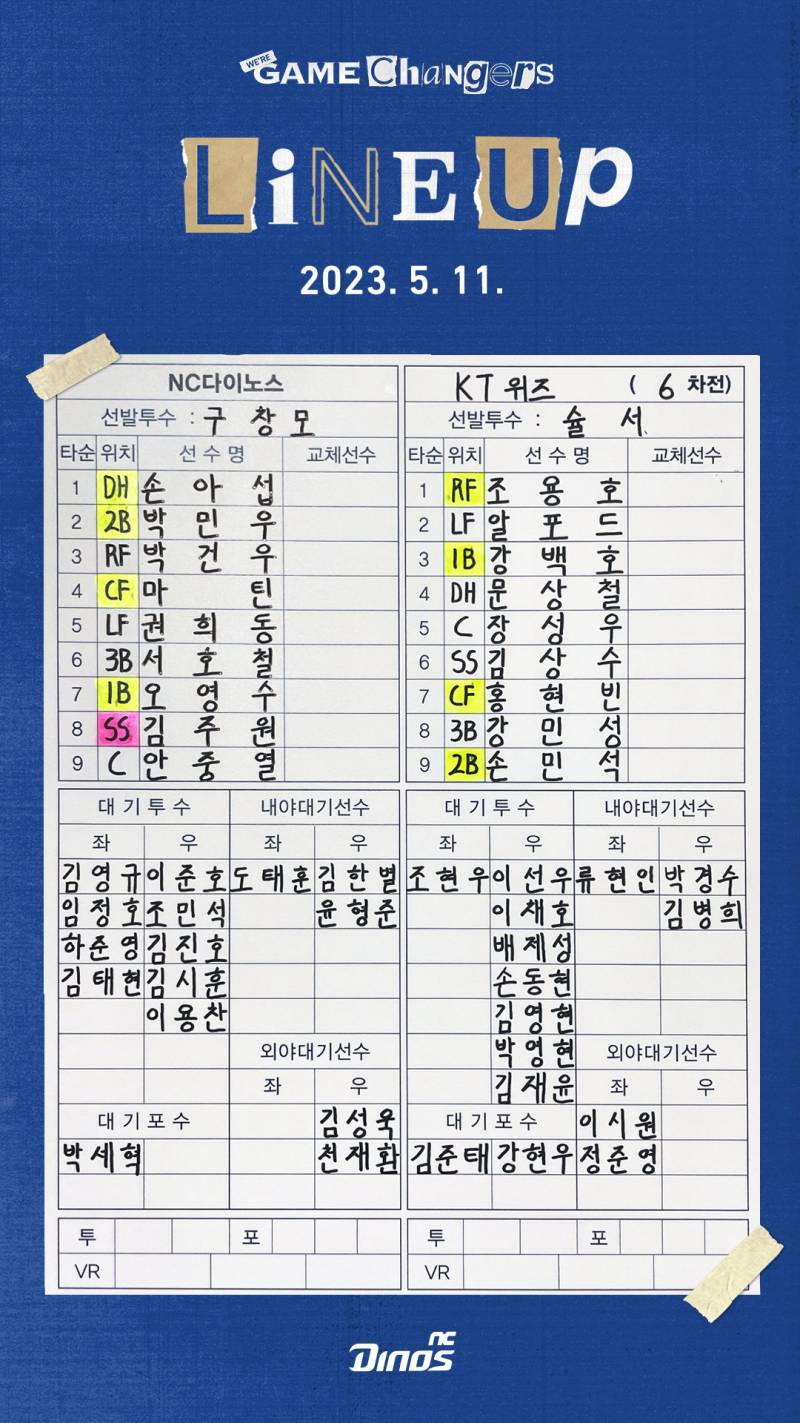 WE'RE GAME CHanGerS
LiNEUp
2023. 5. 11.
NC다이노스
선발투수 : 구 창 모
타순 위치 선 수 명 교체선수
1 DH 손 아 섭
2 2B 박 민 우
3 RF 박 건 우
4 CF 마 틴
5 LF 권 희 동
6 3B 서 호 철
7 1B 오 영 수
8 SS 김 주 원
9 C 안 중 열
대 기 투 수 내야대기선수
좌 우 좌 우
김영규 이준호 도태훈 김한별
임정호 조민석 윤형준
하준영 김진호
김태현 김시훈
이용찬
외야대기선수
좌 우
대 기 포 수 김성욱
박세혁 천재환
투 포
VR
KT 위즈 ( 6 차전)
선발투수 : 슐 서
타순 위치 선 수 명 교체선수
1 RF 조 용 호
2 LF 알 포 드
3 1B 강 백 호
4 DH 문 상 철
5 C 장 성 우
6 SS 김 상 수
7 CF 홍 현 빈
8 3B 강 민 성
9 2B 손 민 석
대 기 투 수 내야대기선수
좌 우 좌 우
조현우 이선우 류현인 박경수
이채호 김병희
배제성
손동현
김영현
박영현 외야대기선수
김재윤 좌 우
대 기 포 수 이시원
김준태 강현우 정준영
투 포
VR
NC Dinos